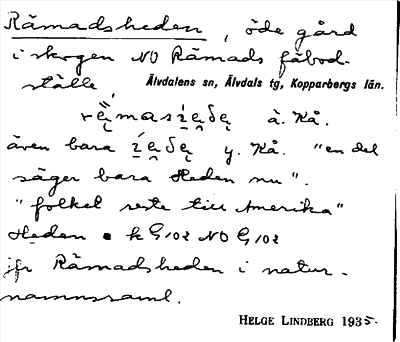 Råmadsheden, öde gård
i skogen NO Råmads fäbod-
ställe,
Älvdalens sn, Älvdals tg, Kopparbergs län.
à. Kå.
även bara y. Kå. "en del
säger bara Heden nu".
"folket reste till Amerika"
Heden = k G102 NO G102
jfr Råmadsheden i natur-
namnssaml.
HELGE LINDBERG 1935.